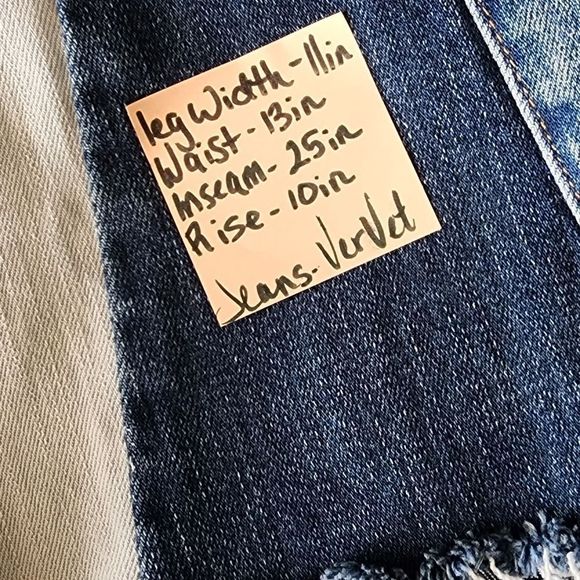 leg Width - 11in
Waist - 13in
Inseam - 25in
Rise - 10in
Jeans - VerVet